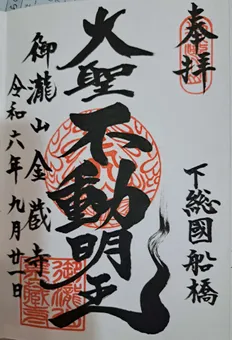 奉拝
下総國船橋
火聖不動明王
御瀧山金蔵寺
令和六年九月廿一日